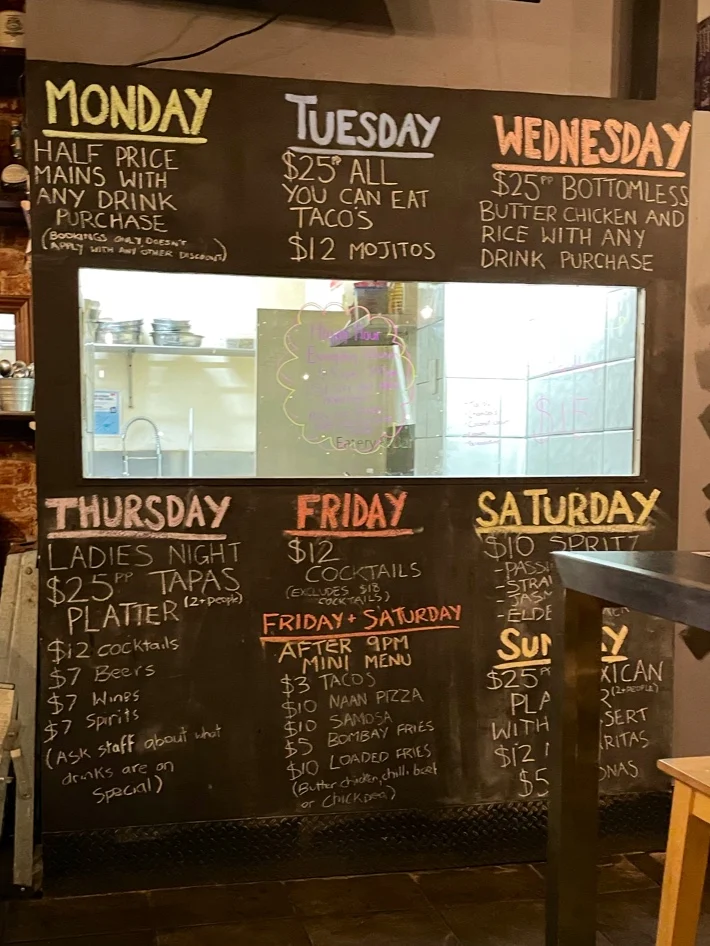 MONDAY
HALF PRICE
MAINS WITH
ANY DRINK
PURCHASE
(BOOKINGS ONLY, DOESN'T
APPLY WITH ANY OTHER DISCOUNT)
TUESDAY
$25PP ALL
YOU CAN EAT
TACO'S
$12 MOJITOS
WEDNESDAY
$25PP BOTTOMLESS
BUTTER CHICKEN AND
RICE WITH ANY
DRINK PURCHASE
Happy Hour
Eatery
$15
THURSDAY
LADIES NIGHT
$25PP TAPAS
PLATTER (2+ people)
$12 cocktails
$7 Beers
$7 Wines
$7 Spirits
(Ask staff about what
drinks are on
special)
FRIDAY
$12
COCKTAILS
(EXCLUDES $18
COCKTAILS)
FRIDAY + SATURDAY
AFTER 9PM
MINI MENU
$3 TACOS
$10 NAAN PIZZA
$10 SAMOSA
$5 BOMBAY FRIES
$10 LOADED FRIES
(Butter chicken, chilli beef
or chickpea)
SATURDAY
$10 SPRITZ
$25
(2+PEOPLE)
WITH
$12
$5